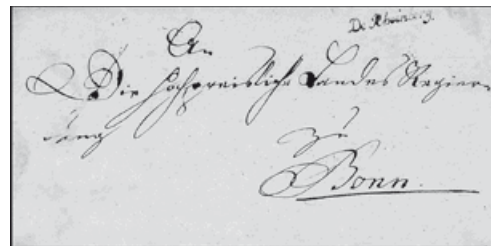 De Rheinberg
An
Die Hochpreisliche Landes Regier-
ung
zu
Bonn.